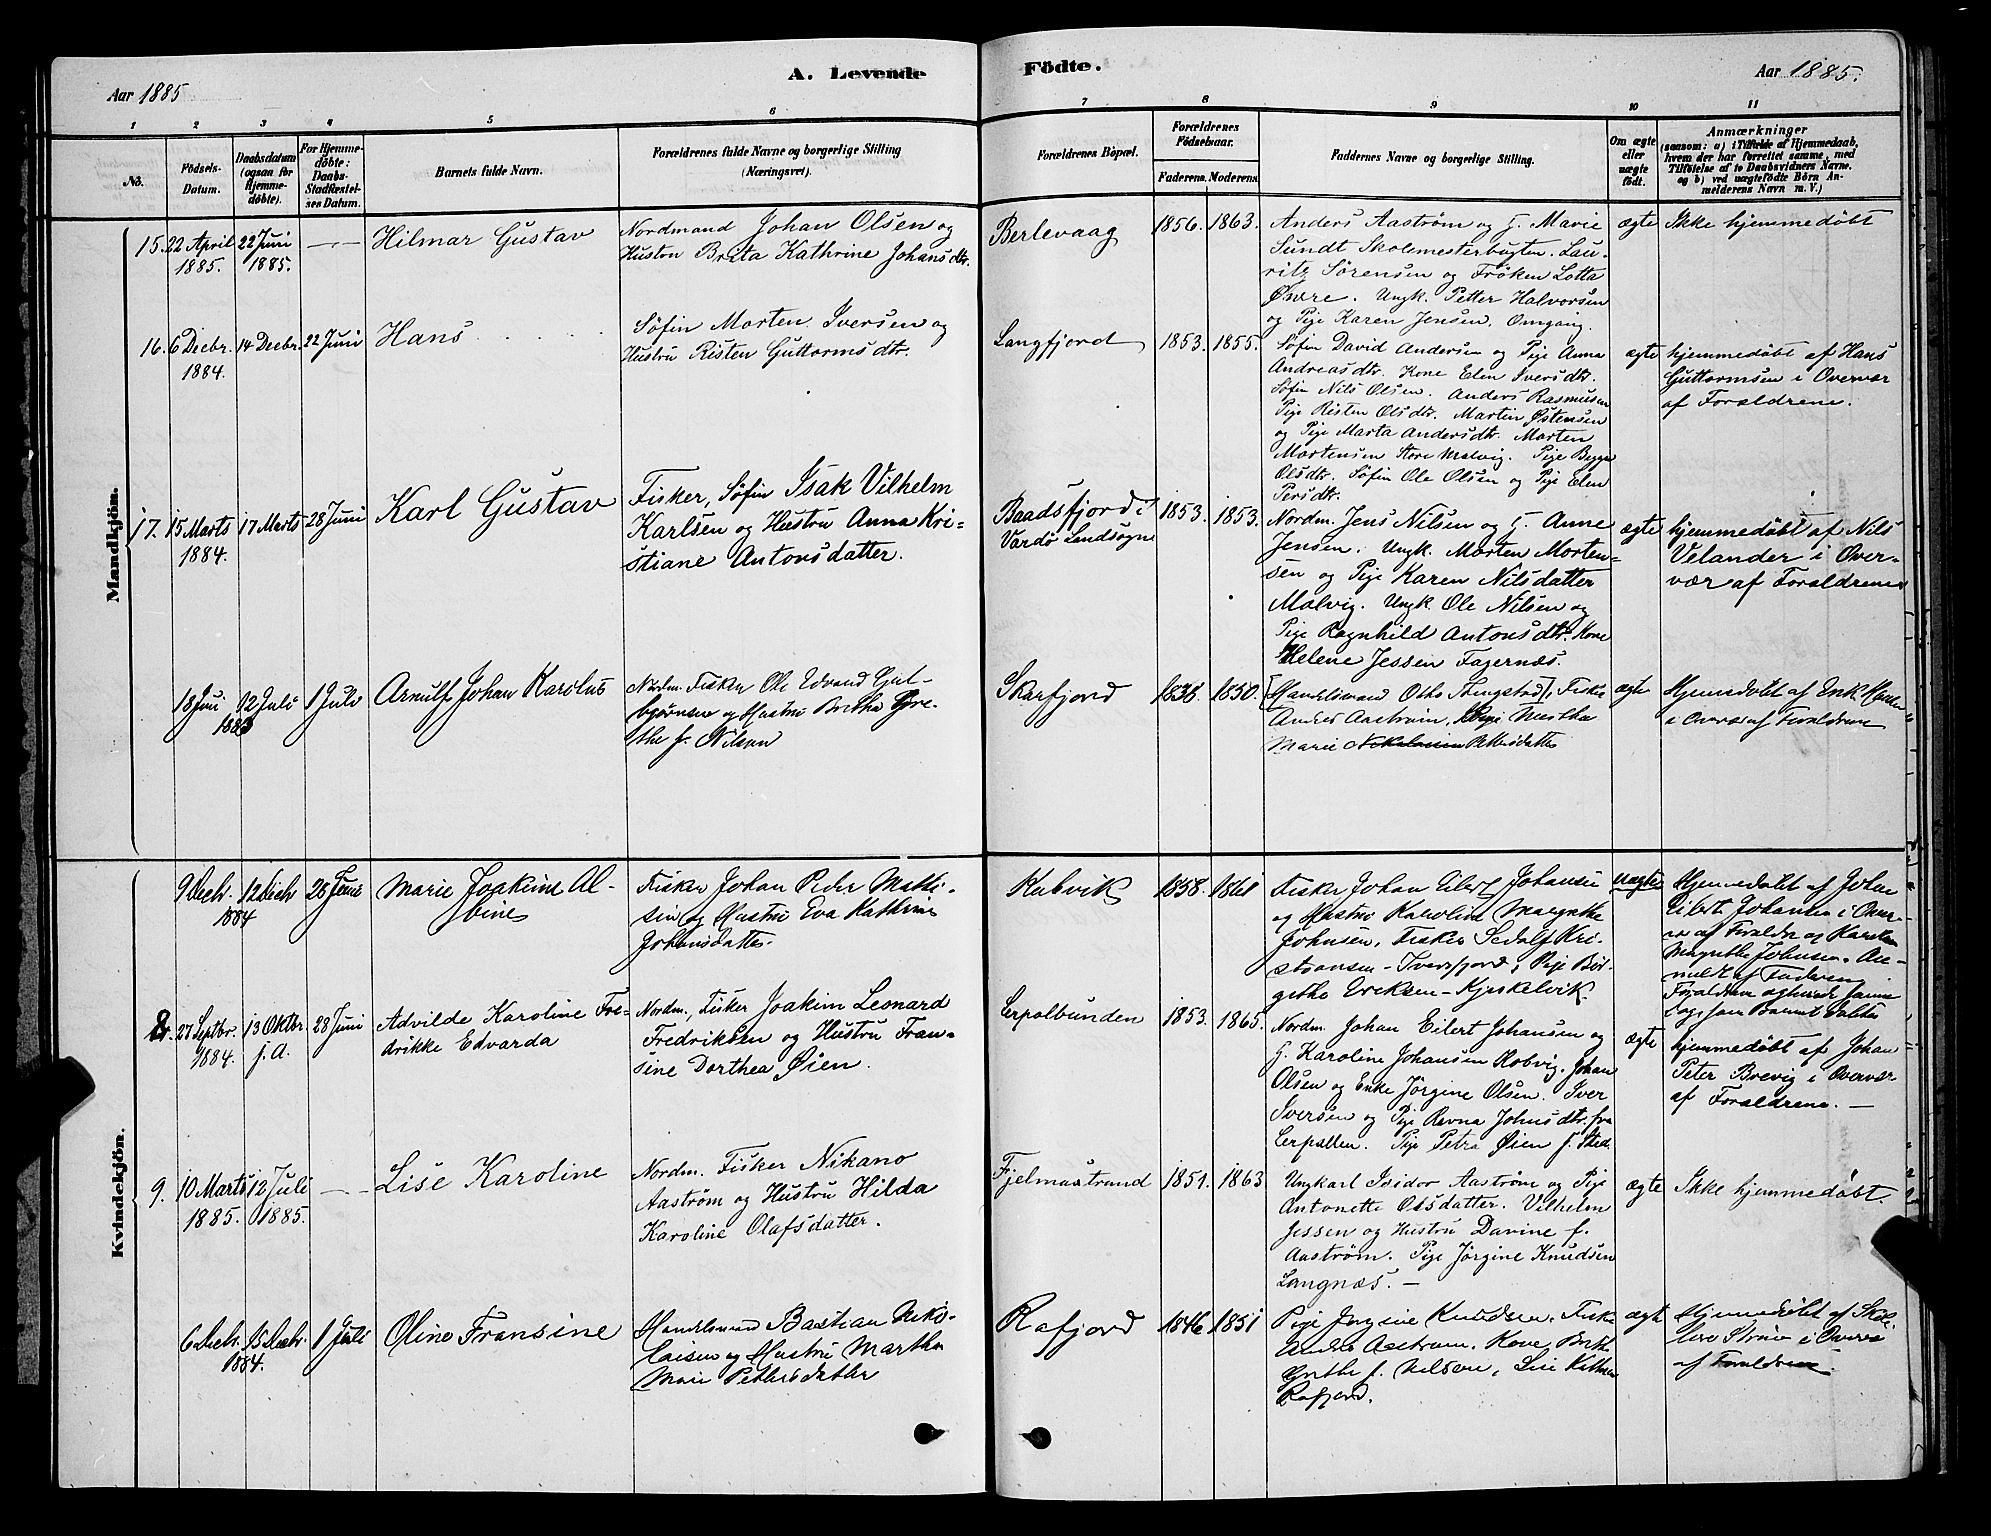 A. Levende
Födte.
Aar 1885
Aar 1885.
1 2 3 4 5 6 7 8 9 10 11
No.
Födsels-
Datum.
Daabsdatum
(ogsaa for
Hjemme-
döbte).
For Hjemme-
döbte:
Daabs-
Stadfæstel-
ses Datum.
Barnets fulde Navn.
Forældrenes fulde Navne og borgerlige Stilling
(Næringsvei).
Forældrenes Bopæl.
Forældrenes
Födselsaar.
Faderens. Moderens.
Faddernes Navne og borgerlige Stilling.
Om ægte
eller
uægte
födt.
Anmærkninger
(saasom: a) i Tilfælde af Hjemmedaab,
hvem der har forrettet samme, med
Tilföielse af to Daabsvidners Navne,
og b) ved uægtefödte Börn An-
melderens Navn m. V.)
Mandkjön.
15. 22 April
1885.
22 Juni
1885.
Hilmar Gustav
Nordmand Johan Olsen og
Hustru Brita Kathrine Johansdtr.
Berlevaag
1856. 1863.
Anders Aaström og H. Marie
Sundt Skolemesterbugten. Lau-
ritz Sörensen og Fröken Lotta
Øwre. Ungk. Petter Halvorsen
og Pige Karen Jensen, Omgang.
ægte
Ikke hjemmedøbt
16. 6 Decbr.
1884.
14 Decbr.
22 Juni
Hans
Søfin Morten Iversen og
Hustru Risten Guttormsdtr.
Langfjord
1853. 1855.
Søfin David Andersen og Pige Anna
Andreasdtr. Kone Elen Iversdtr.
Søfin Nils Olsen. Anders Rasmusen
Pige Risten Olsdtr. Martin Østensen
og Pige Marta Andersdtr. Morten
Mortensen Store Malvig. Pige Bigga
Olsdtr. Søfin Ole Olsen og Pige Elen
Persdtr.
ægte
hjemmedøbt af Hans
Guttormsen i Overvær
af Forældrene.
17. 15 Marts
1884.
17 Marts
28 Juni
Karl Gustav
Fisker, Søfin Isak Vilhelm
Karlsen og Hustru Anna Kri-
stiane Antonsdatter.
Baadsfjord i
Vardø Landsogn
1853. 1853.
Nordm. Jens Nilsen og H. Anne
Jensen. Ungk. Morten Morten-
sen og Pige Karen Nilsdatter
Malvig. Ungk. Ole Nilsen og
Pige Ragnhild Antonsdtr. Kone
Helene Jessen Fagernæs.
ægte
hjemmedøbt af Nils
Velander i Over-
vær af Forældrene
18 Juni
1883
12 Juli
1 Juli
Arnulf Johan Karolus
Nordm. Fisker Ole Edvard Gul-
bjørnsen og Hustru Brithe Gre-
the f. Nilsen
Skarfjord
1838. 1850.
Handelsmand Otto Stengstad, Fisker
Andres Aastrøm, Pige Martha
Marie Nikolaisen Pettersdatter
ægte
Hjemmedøbt af Erik Hansen
i Overvær af Forældrene
Kvindekjön.
9 Decbr.
1884
12 Decbr
25 Juni
Marie Joakime Al-
bine
Fisker Johan Peder Matti-
sen og Hustru Eva Kathrine
Johansdatter.
Kabvik
1858. 1861
Fisker Johan Eilert Johansen
og Hustru Karoline Margrethe
Johnsen, Fisker Sedolf Kri-
stiansen - Iversfjord, Pige Bir-
githe Eriksen - Kjeskelvik.
uægte
Hjemmedøbt af Johan
Eilert Johansen i Over-
vær af Forældre og Karoline
Magrethe Johnsen. An-
meldt af Faderen
8. 27 Septbr.
1884.
13 Oktbr.
s. A.
28 Juni
Advilde Karoline Fre-
drikke Edvarda
Nordm. Fisker Joakim Leonard
Fredriksen og Hustru Fran-
sine Dorthea Øien.
Lerpolbunden
1853. 1865.
Nordm. Johan Eilert Johansen og
H. Karoline Johansen Kobvig. Johan
Olsen og Enke Jörgine Olsen. Iver
Iversen og Pige Ravna Johnsdtr. fra
Lerpollen. Pige Petra Øien f. Sted
ægte
hjemmedøbt af Johan
Peter Brevig i Overvær
af Forældrene.
9. 10 Marts
1885.
12 Juli
1885.
Lise Karoline
Nordm. Fisker Nikano
Aaström og Hustru Hilda
Karoline Olafsdatter.
Fjelmastrand
1851. 1863
Ungkarl Isidor Aaström og Pige
Antonette Olsdatter. Vilhelm
Jessen og Hustru Davine f.
Aaström. Pige Jörgine Knudsen
Langnæs.
ægte
Ikke hjemmedøbt.
6 Decbr.
1884.
15 Decbr
1 Juli
Oline Fransine
Handelsmand Bastian Niko-
laisen og Hustru Martha
Marie Pettersdatter
Rafjord
1846 1851
Pige Jørgine Knudsen. Fisker
Andre Aastrøm. Kone Brithe
Grethe f. Nilsen,
Rafjord.
ægte
Hjemmedøbt af
i Overvær
af Forældrene